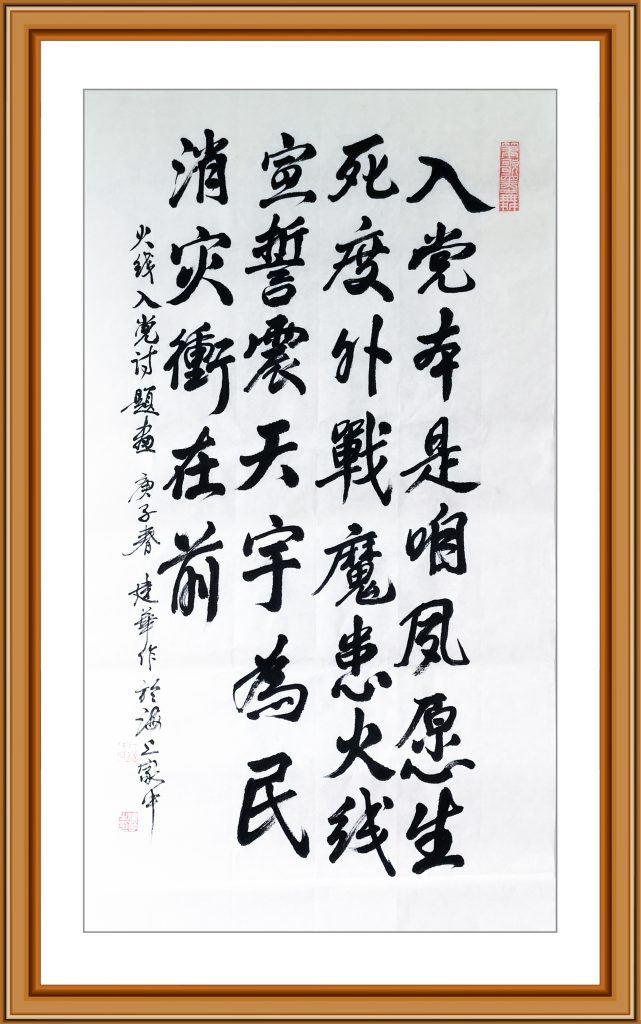 筆歌墨舞
入党本是咱夙愿生
死度外戰魔患火线
宣誓震天宇為民
消灾衝在前
火线入党诗題畫 庚子春 建華作於海上家中